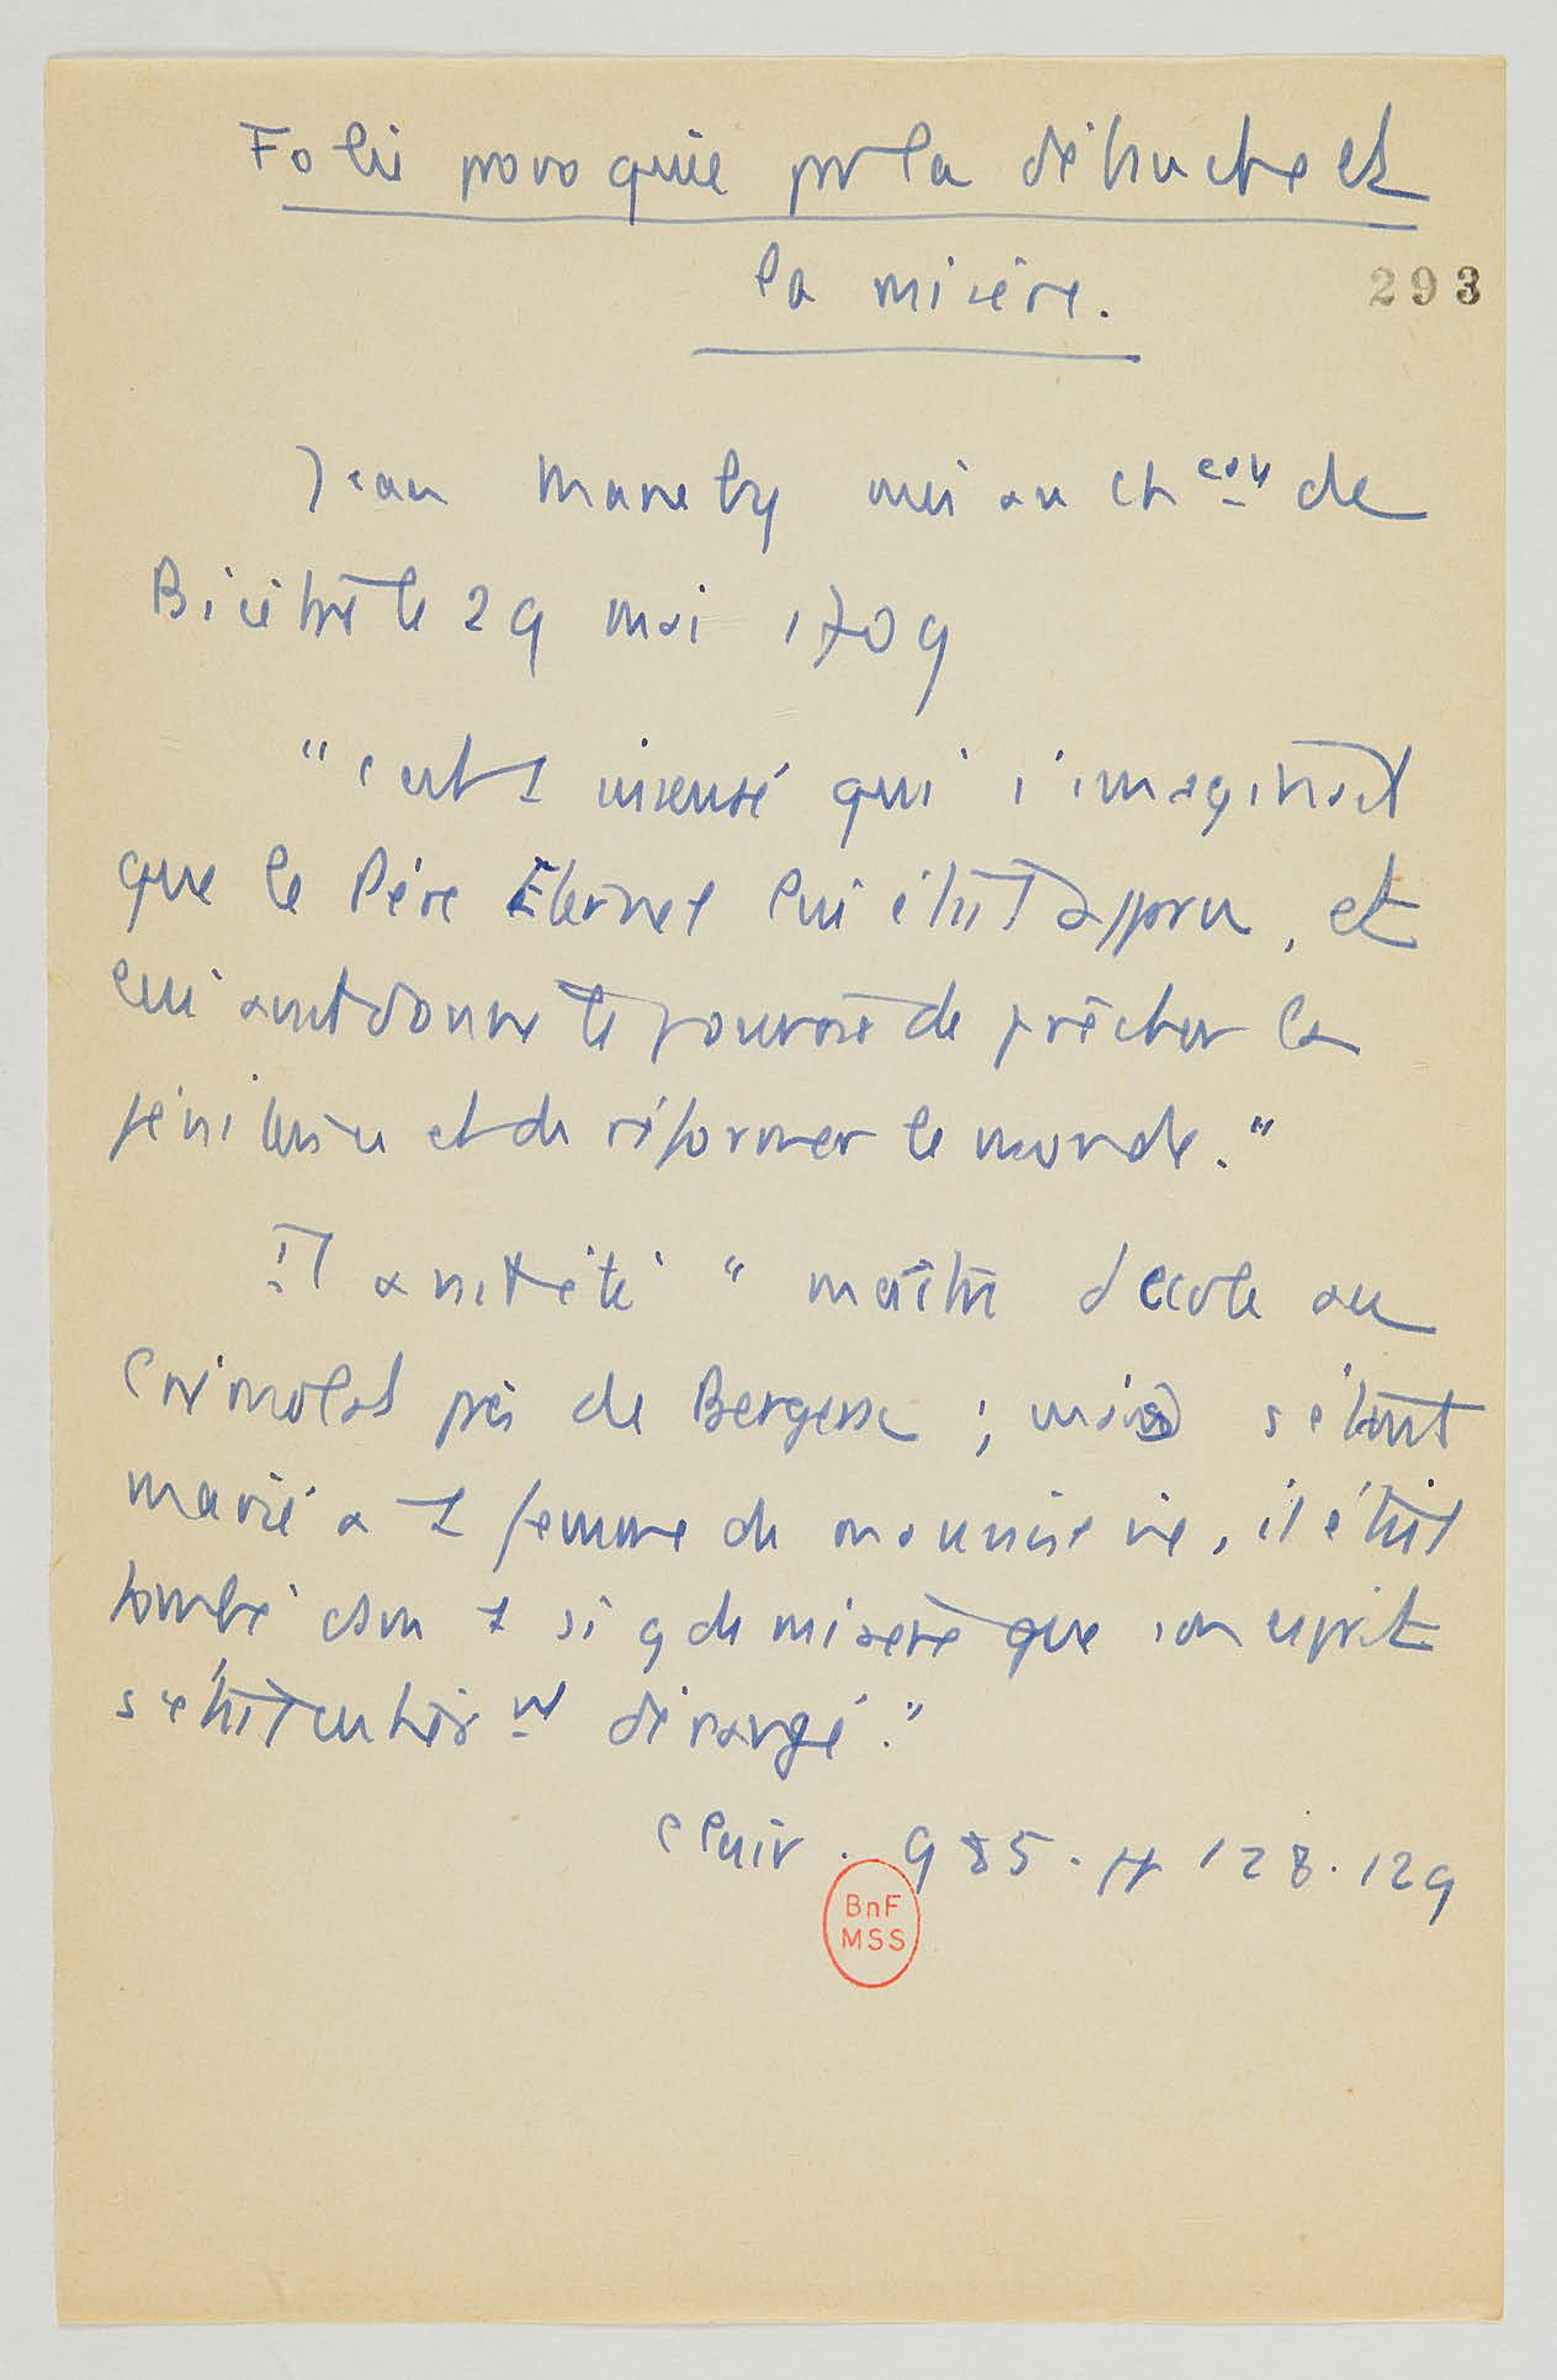 Folie provoquée par la débauche et
la misère.
293
Jean Manety mis au ch eau de
Bicêtre le 29 mai 1709
"c'est 1 insensé qui s'imaginait
que le Père Éternel lui était apparu, et
lui avait donné le pouvoir de prêcher la
pénitence et de réformer le monde."
Il avait été "maître d'école au
près de Bergerac ; mais s'étant
marié a 1 femme de mauvaise vie, il était
tombé dans 1 si gde misère que son esprit
s'était entièr nt dérangé."
Clair. 985. pp 128.129
BnF
MSS